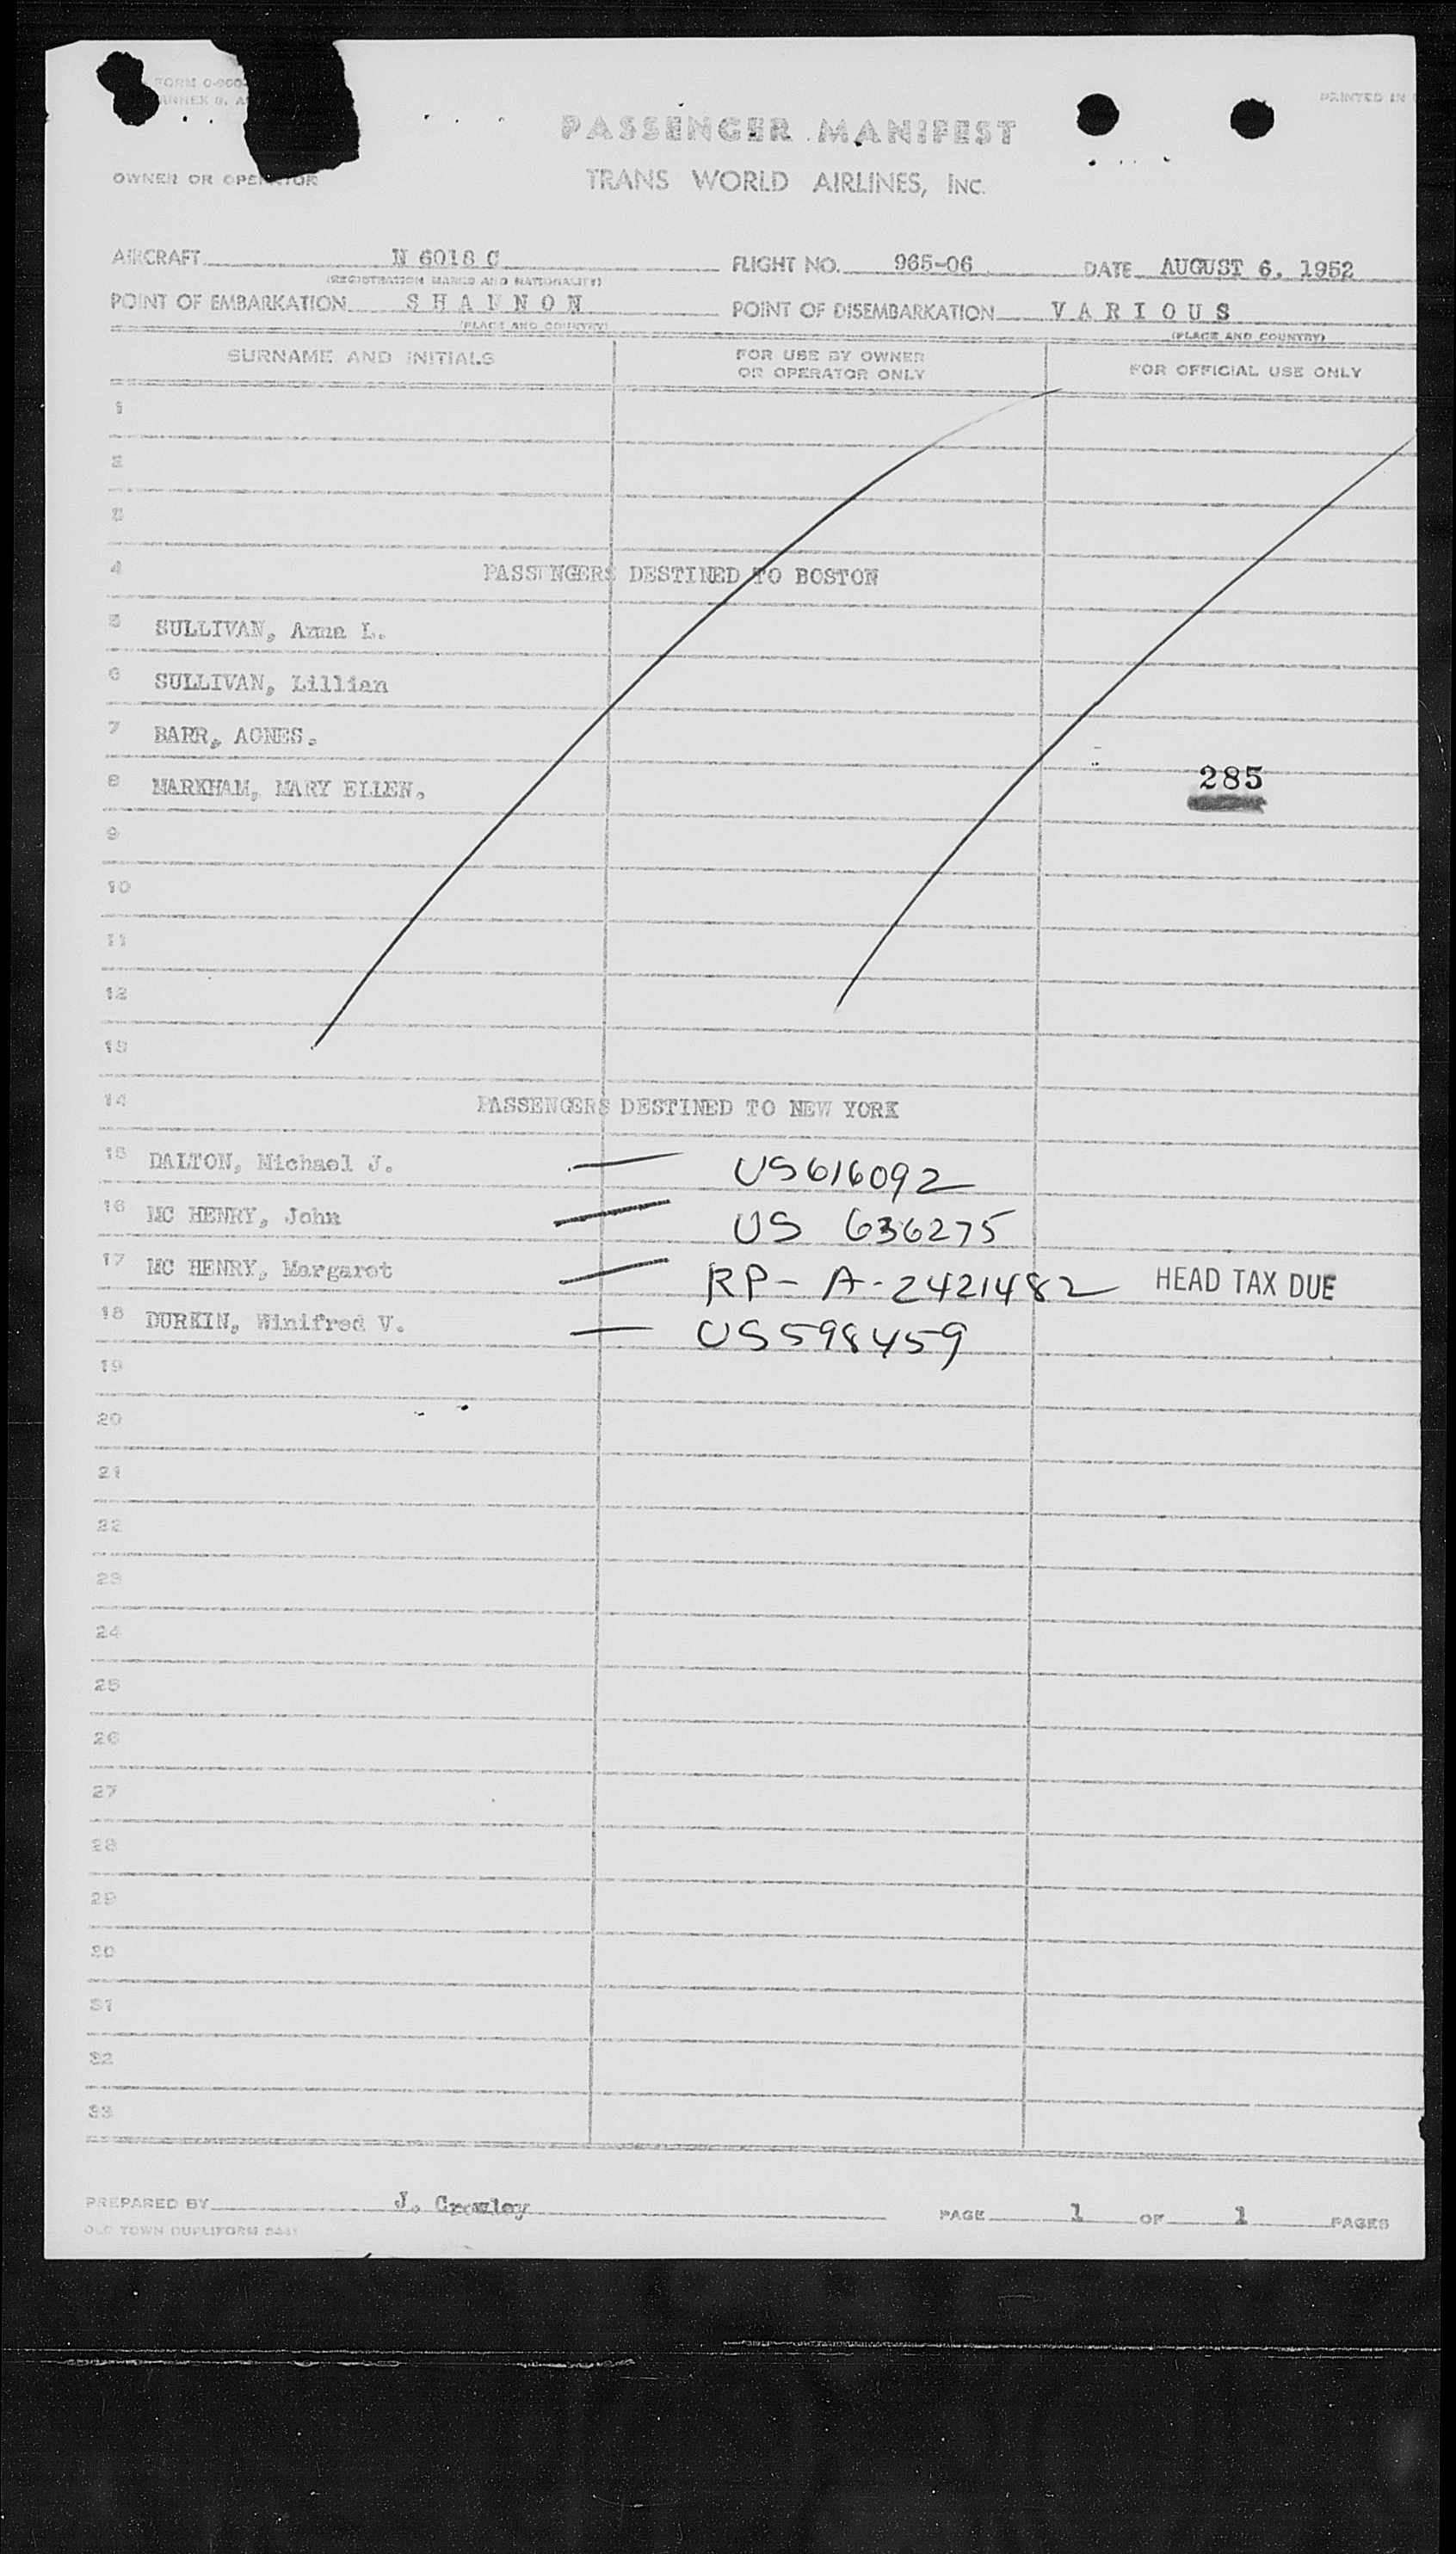 FORM 0-900
ANNEX 9, A
PRINTED IN
PASSENGER MANIFEST
OWNER OR OPERATOR
TRANS WORLD AIRLINES, INC.
AIRCRAFT N 6018 C FLIGHT NO. 965-06 DATE AUGUST 6, 1952
(REGISTRATION MARKS AND NATIONALITY)
POINT OF EMBARKATION SHANNON POINT OF DISEMBARKATION VARIOUS
(PLACE AND COUNTRY) (PLACE AND COUNTRY)
SURNAME AND INITIALS FOR USE BY OWNER OR OPERATOR ONLY FOR OFFICIAL USE ONLY
1
2
3
4 PASSENGERS DESTINED TO BOSTON
5 SULLIVAN, Anna L.
6 SULLIVAN, Lillian
7 BARR, AGNES.
8 MARKHAM, MARY ELLEN. 285
9
10
11
12
13
14 PASSENGERS DESTINED TO NEW YORK
15 DALTON, Michael J. — US616092
16 MC HENRY, John — US 636275
17 MC HENRY, Margaret — RP- A-2421482 HEAD TAX DUE
18 DURKIN, Winifred V. — US598459
19
20
21
22
23
24
25
26
27
28
29
30
31
32
33
PREPARED BY J. Crowley PAGE 1 OF 1 PAGES
OLD TOWN DUPLIFORM